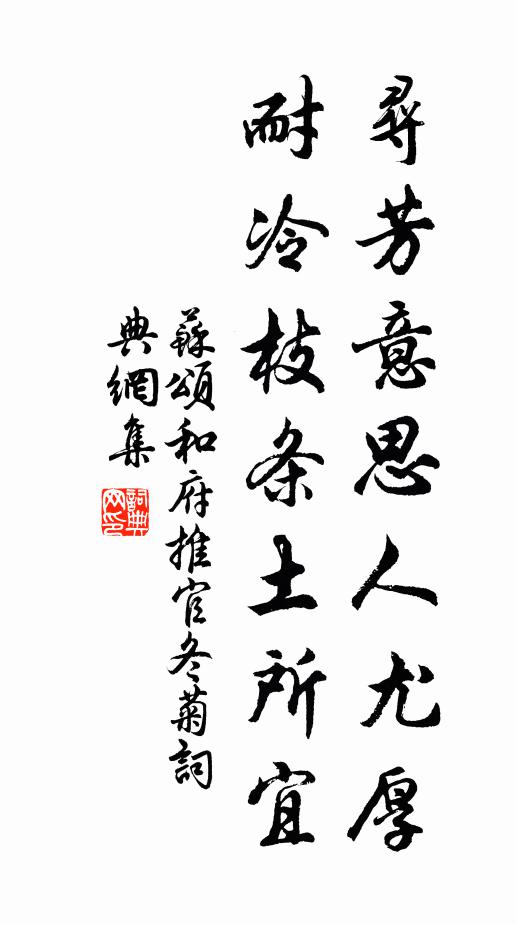 尋芳意思人尤厚
耐冷枝条土所宜
蘇頌和府推官冬菊詞
典網集
詞典网印